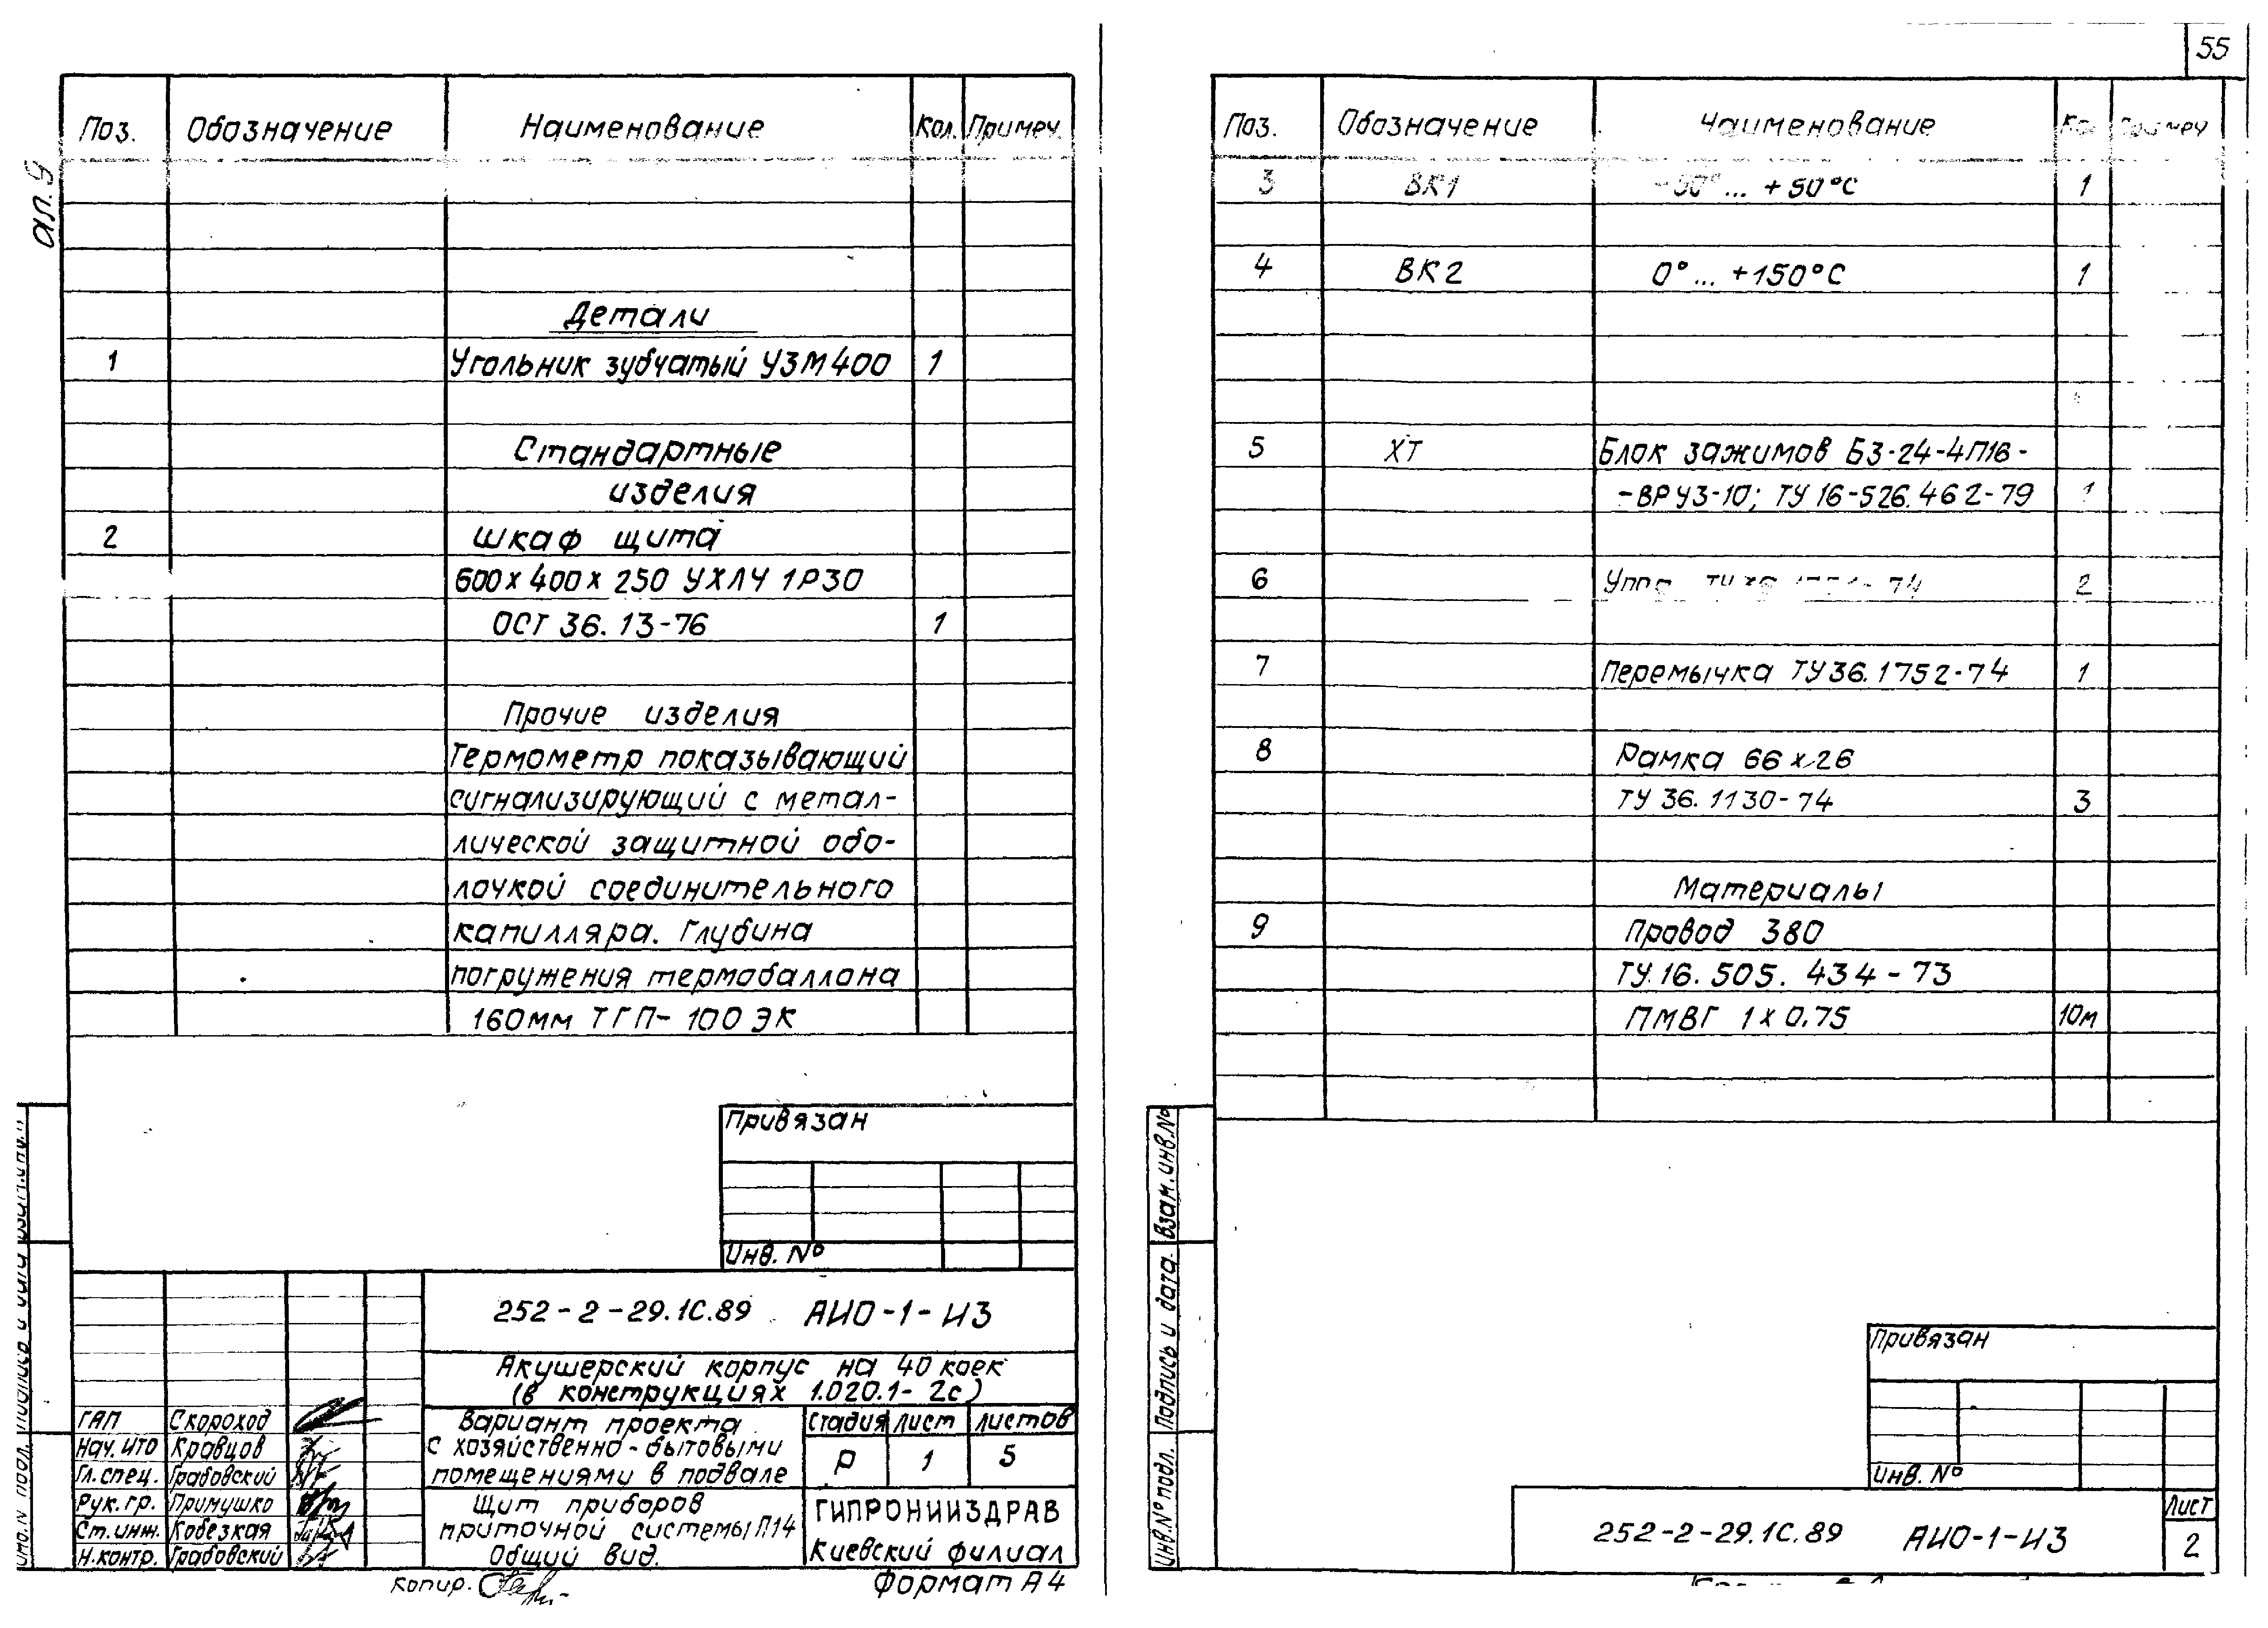 ал. 9
Поз. Обозначение Наименование Кол. Примеч.
Детали
1 Угольник зубчатый УЗМ400 1
Стандартные
изделия
2 Шкаф щита
600х400х250 УХЛ4 1Р30
ОСТ 36.13-76 1
Прочие изделия
Термометр показывающий
сигнализирующий с метал-
лической защитной обо-
лочкой соединительного
капилляра. Глубина
погружения термобаллона
160мм ТГП-100ЭК
Привязан
Инв. №
252-2-29.1С.89 АИО-1-ИЗ
Акушерский корпус на 40 коек
(в конструкциях 1.020.1-2с)
ГАП Скороход
Нач. ИТО Кравцов
Гл. спец. Грабовский
Рук. гр. Примушко
Ст. инж. Кобезкая
Н. контр. Грабовский
Вариант проекта
с хозяйственно-бытовыми
помещениями в подвале
Стадия Лист Листов
Р 1 5
Щит приборов
приточной системы П14
Общий вид.
ГИПРОНИИЗДРАВ
Киевский филиал
Копир.
Формат А4
55
Поз. Обозначение Наименование Примеч
3 ВК1 -50°... +50°С 1
4 ВК2 0°... +150°С 1
5 ХТ Блок зажимов БЗ-24-4П16-
-ВРУЗ-10; ТУ 16-526.462-79 1
6 74 2
7 Перемычка ТУ36.1752-74 1
8 Рамка 66х26
ТУ 36.1130-74 3
Материалы
9 Провод 380
ТУ.16.505.434-73
ПМВГ 1х0.75 10м
Взам. инв. №
Подпись и дата
Инв. № подл.
Привязан
Инв. №
252-2-29.1С.89 АИО-1-ИЗ
Лист
2